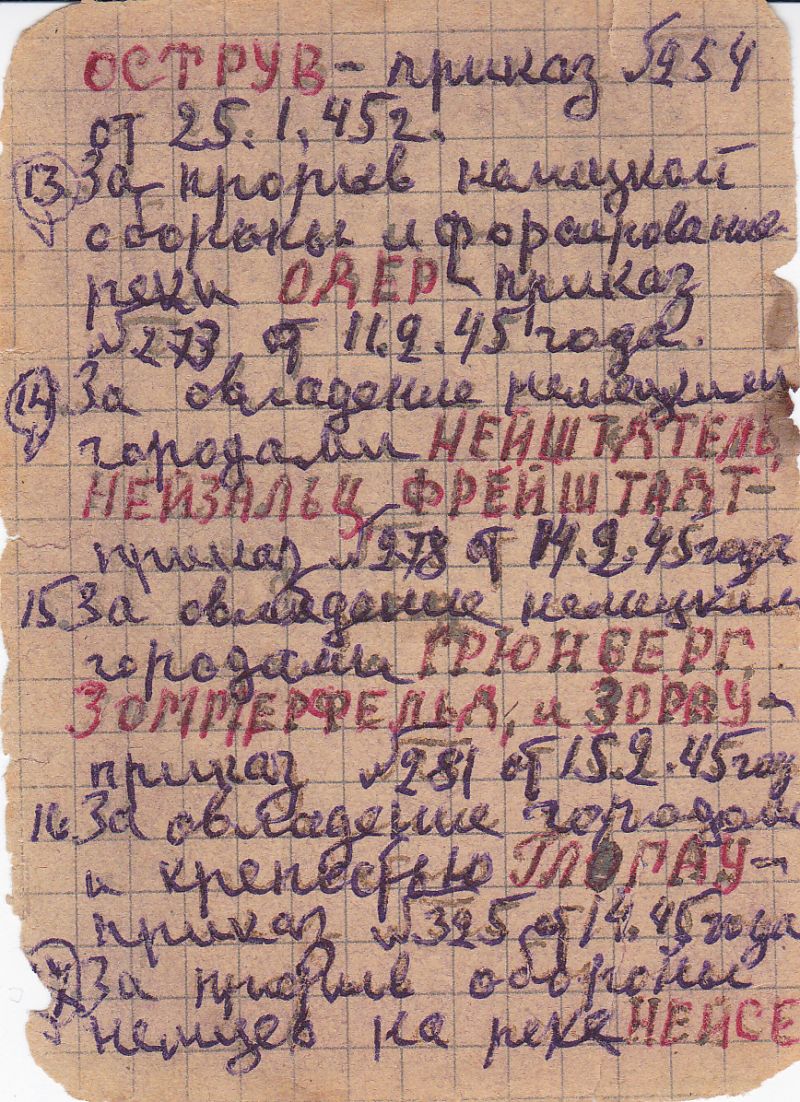 ОСТРУВ - приказ №254
от 25.1.45г.
13 За прорыв немецкой
обороны и форсирование
реки ОДЕР - приказ
№273 от 11.2.45 года.
14 За овладение немецкими
городами НЕЙШТАТЕЛЬ,
НЕЙЗАЛЬЦ, ФРЕЙШТАДТ-
приказ №278 от 14.2.45 года
15. За овладение немецким
городами ГРЮНБЕРГ,
ЗОММЕРФЕЛЬД, и ЗОРАУ-
приказ №281 от 15.2.45 год
16. За овладение городом
и крепостью ГЛОГАУ-
приказ №325 от 1.4.45 года
17 За прорыв обороны
немцев на реке НЕЙСЕ